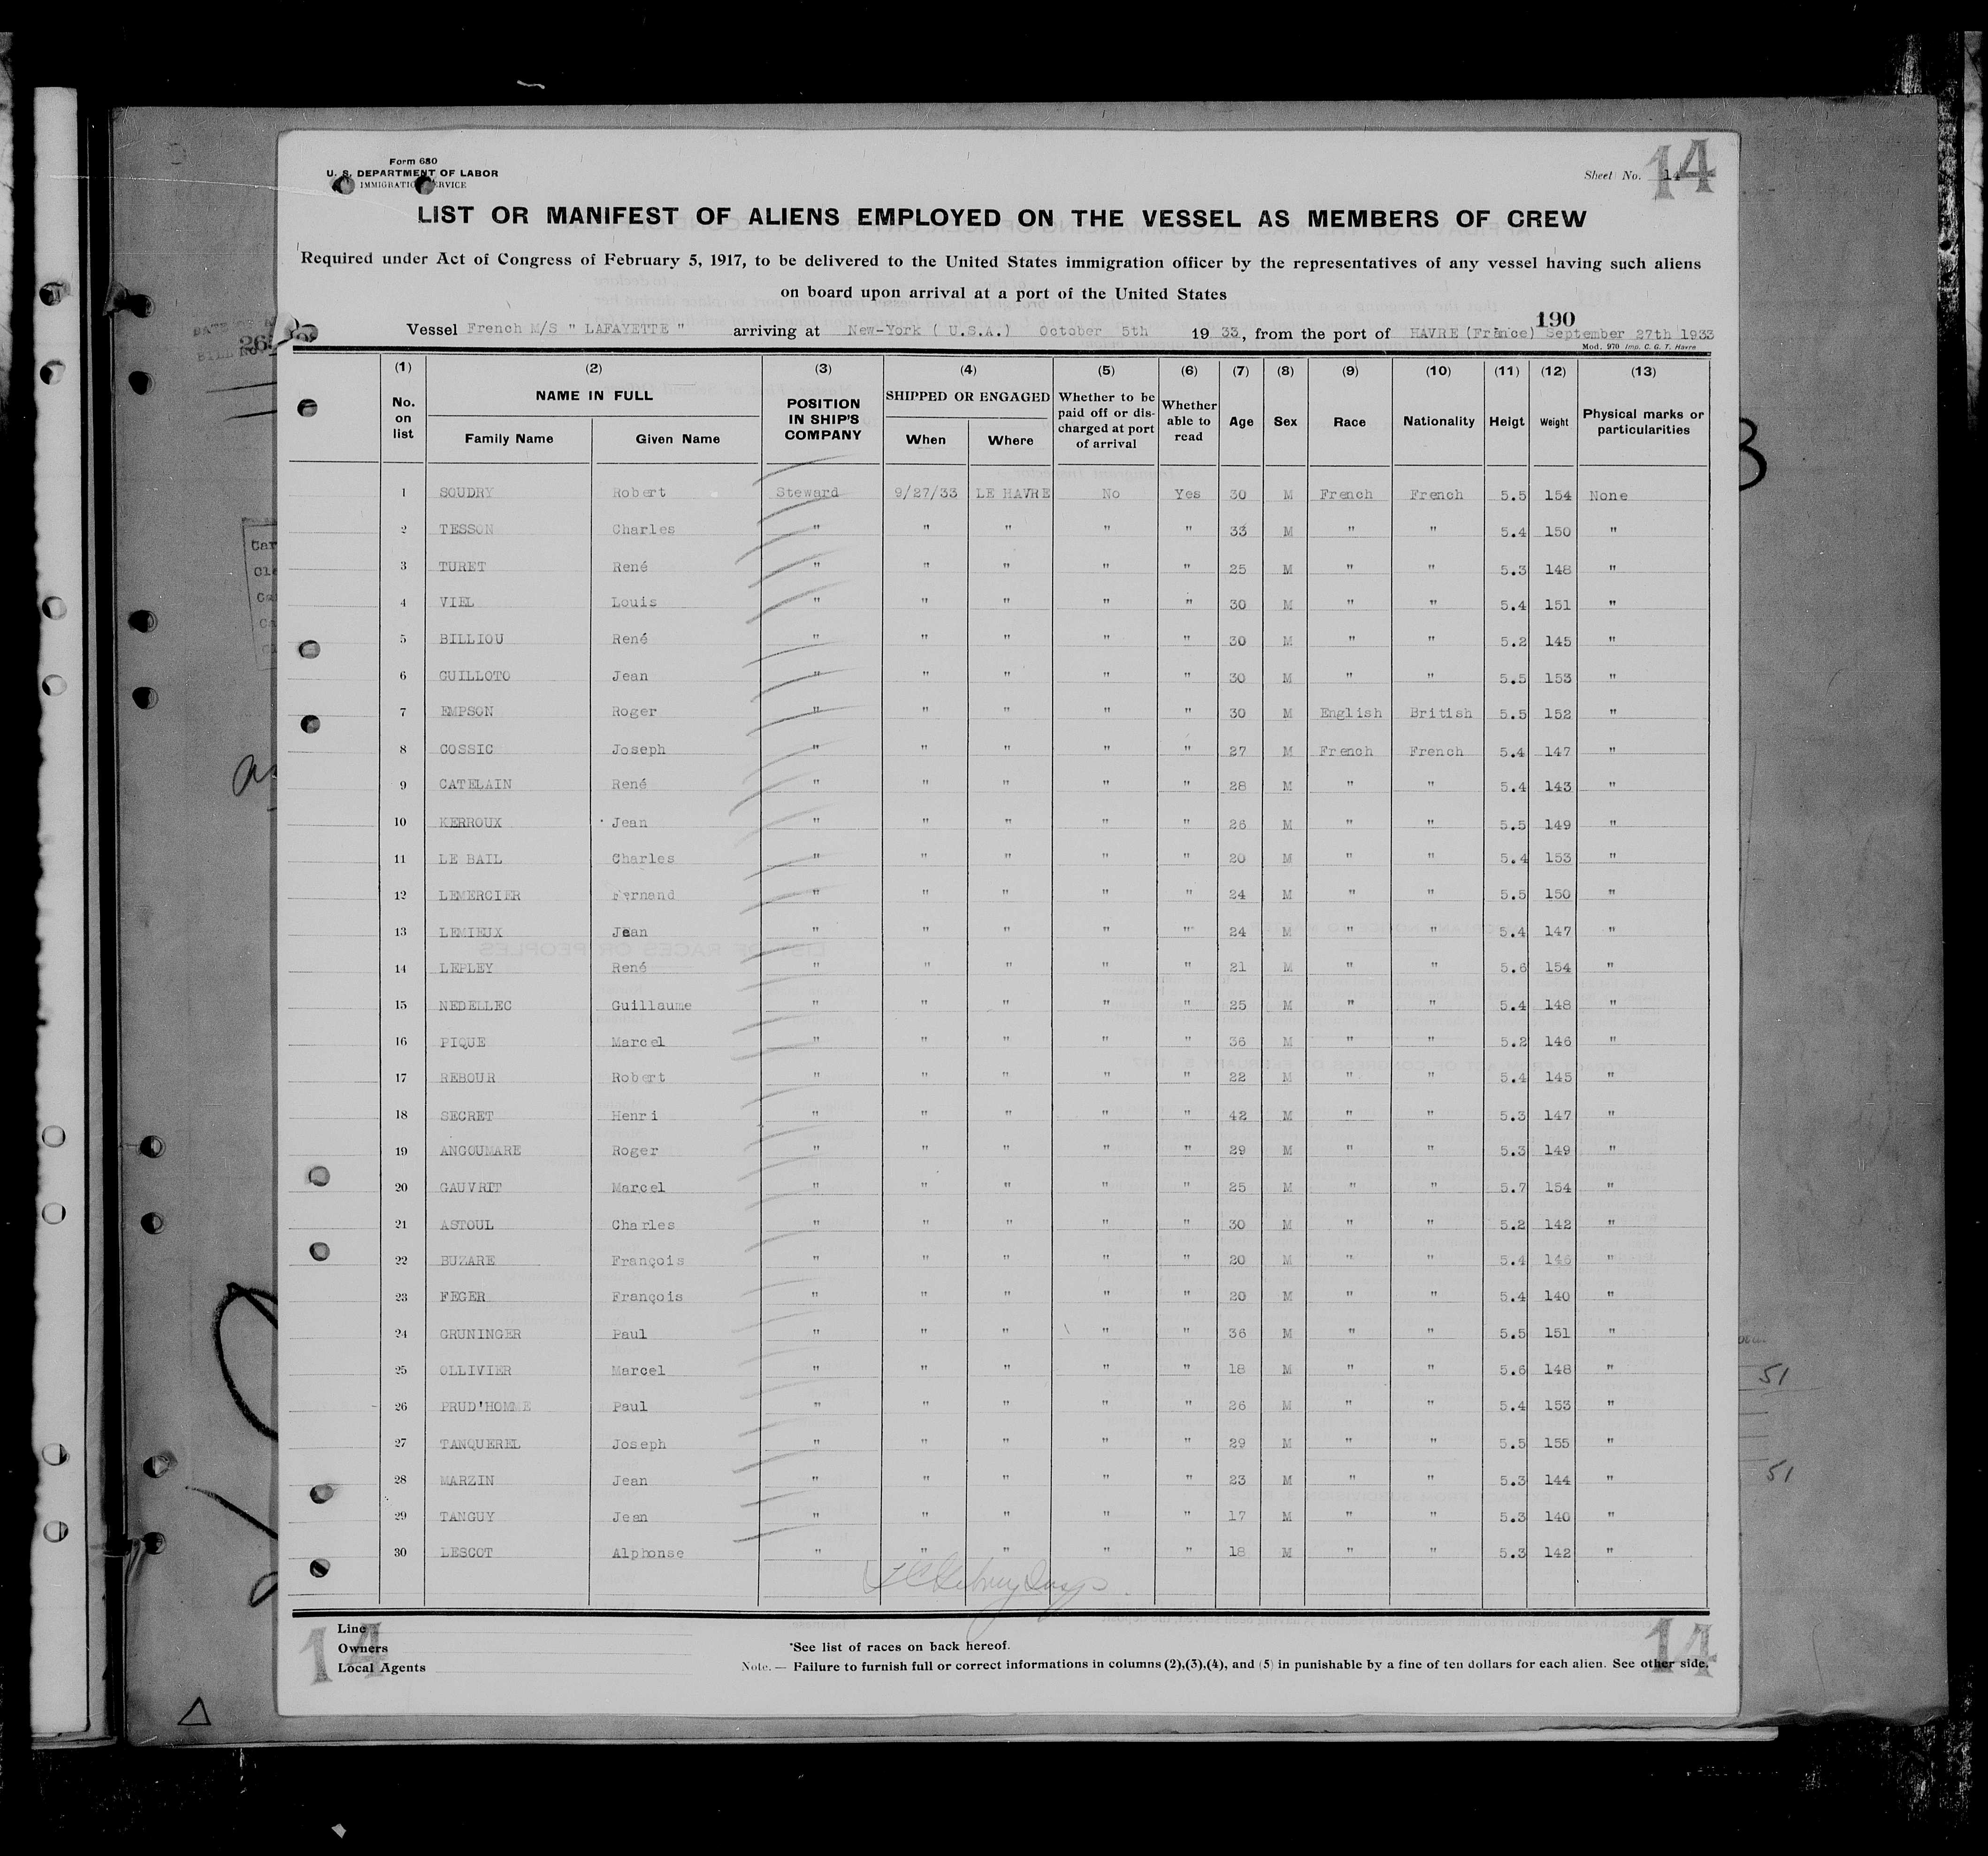 Form 680
U. S. DEPARTMENT OF LABOR
IMMIGRATION SERVICE
Sheet No. 14
14
LIST OR MANIFEST OF ALIENS EMPLOYED ON THE VESSEL AS MEMBERS OF CREW
Required under Act of Congress of February 5, 1917, to be delivered to the United States immigration officer by the representatives of any vessel having such aliens
on board upon arrival at a port of the United States
190
Vessel French M/S " LAFAYETTE " arriving at New-York ( U.S.A.) October 5th 19 33, from the port of HAVRE (France) September 27th 1933
Mod. 970 Imp. C. G. T. Havre
(1) (2) (3) (4) (5) (6) (7) (8) (9) (10) (11) (12) (13)
No. on list NAME IN FULL Family Name Given Name POSITION IN SHIP'S COMPANY SHIPPED OR ENGAGED When Where Whether to be paid off or discharged at port of arrival Whether able to read Age Sex Race Nationality Heigt Weight Physical marks or particularities
1 SOUDRY Robert Steward 9/27/33 LE HAVRE No Yes 30 M French French 5.5 154 None
2 TESSON Charles " " " " " 33 M " " 5.4 150 "
3 TURET René " " " " " 25 M " " 5.3 148 "
4 VIEL Louis " " " " " 30 M " " 5.4 151 "
5 BILLIOU René " " " " " 30 M " " 5.2 145 "
6 GUILLOTO Jean " " " " " 30 M " " 5.5 153 "
7 EMPSON Roger " " " " " 30 M English British 5.5 152 "
8 COSSIC Joseph " " " " " 27 M French French 5.4 147 "
9 CATELAIN René " " " " " 28 M " " 5.4 143 "
10 KERROUX Jean " " " " " 26 M " " 5.5 149 "
11 LE BAIL Charles " " " " " 20 M " " 5.4 153 "
12 LEMERCIER Fernand " " " " " 24 M " " 5.5 150 "
13 LEMIEUX Jean " " " " " 24 M " " 5.4 147 "
14 LEPLEY René " " " " " 21 M " " 5.6 154 "
15 NEDELLEC Guillaume " " " " " 25 M " " 5.4 148 "
16 PIQUE Marcel " " " " " 36 M " " 5.2 146 "
17 REBOUR Robert " " " " " 22 M " " 5.4 145 "
18 SECRET Henri " " " " " 42 M " " 5.3 147 "
19 ANGOUMARE Roger " " " " " 29 M " " 5.3 149 "
20 GAUVRIT Marcel " " " " " 25 M " " 5.7 154 "
21 ASTOUL Charles " " " " " 30 M " " 5.2 142 "
22 BUZARE François " " " " " 20 M " " 5.4 146 "
23 FEGER François " " " " " 20 M " " 5.4 140 "
24 GRUNINGER Paul " " " " " 36 M " " 5.5 151 "
25 OLLIVIER Marcel " " " " " 18 M " " 5.6 148 "
26 PRUD'HOMME Paul " " " " " 26 M " " 5.4 153 "
27 TANQUEREL Joseph " " " " " 29 M " " 5.5 155 "
28 MARZIN Jean " " " " " 23 M " " 5.3 144 "
29 TANGUY Jean " " " " " 17 M " " 5.3 140 "
30 LESCOT Alphonse " " " " " 18 M " " 5.3 142 "
51
51
Line
Owners
Local Agents
14
*See list of races on back hereof.
Note. — Failure to furnish full or correct informations in columns (2),(3),(4), and (5) in punishable by a fine of ten dollars for each alien. See other side.
14